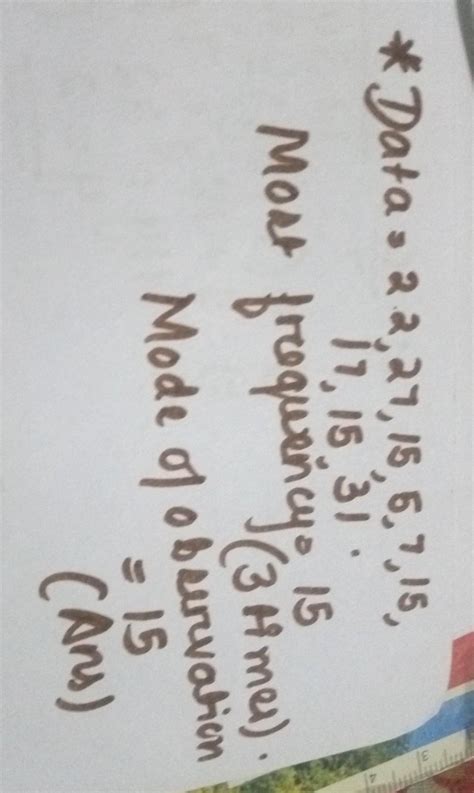 * Data = 22, 27, 15, 5, 7, 15,
17, 15, 31.
Most frequency = 15
(3 times).
Mode of observation
= 15
(Ans)
3
4